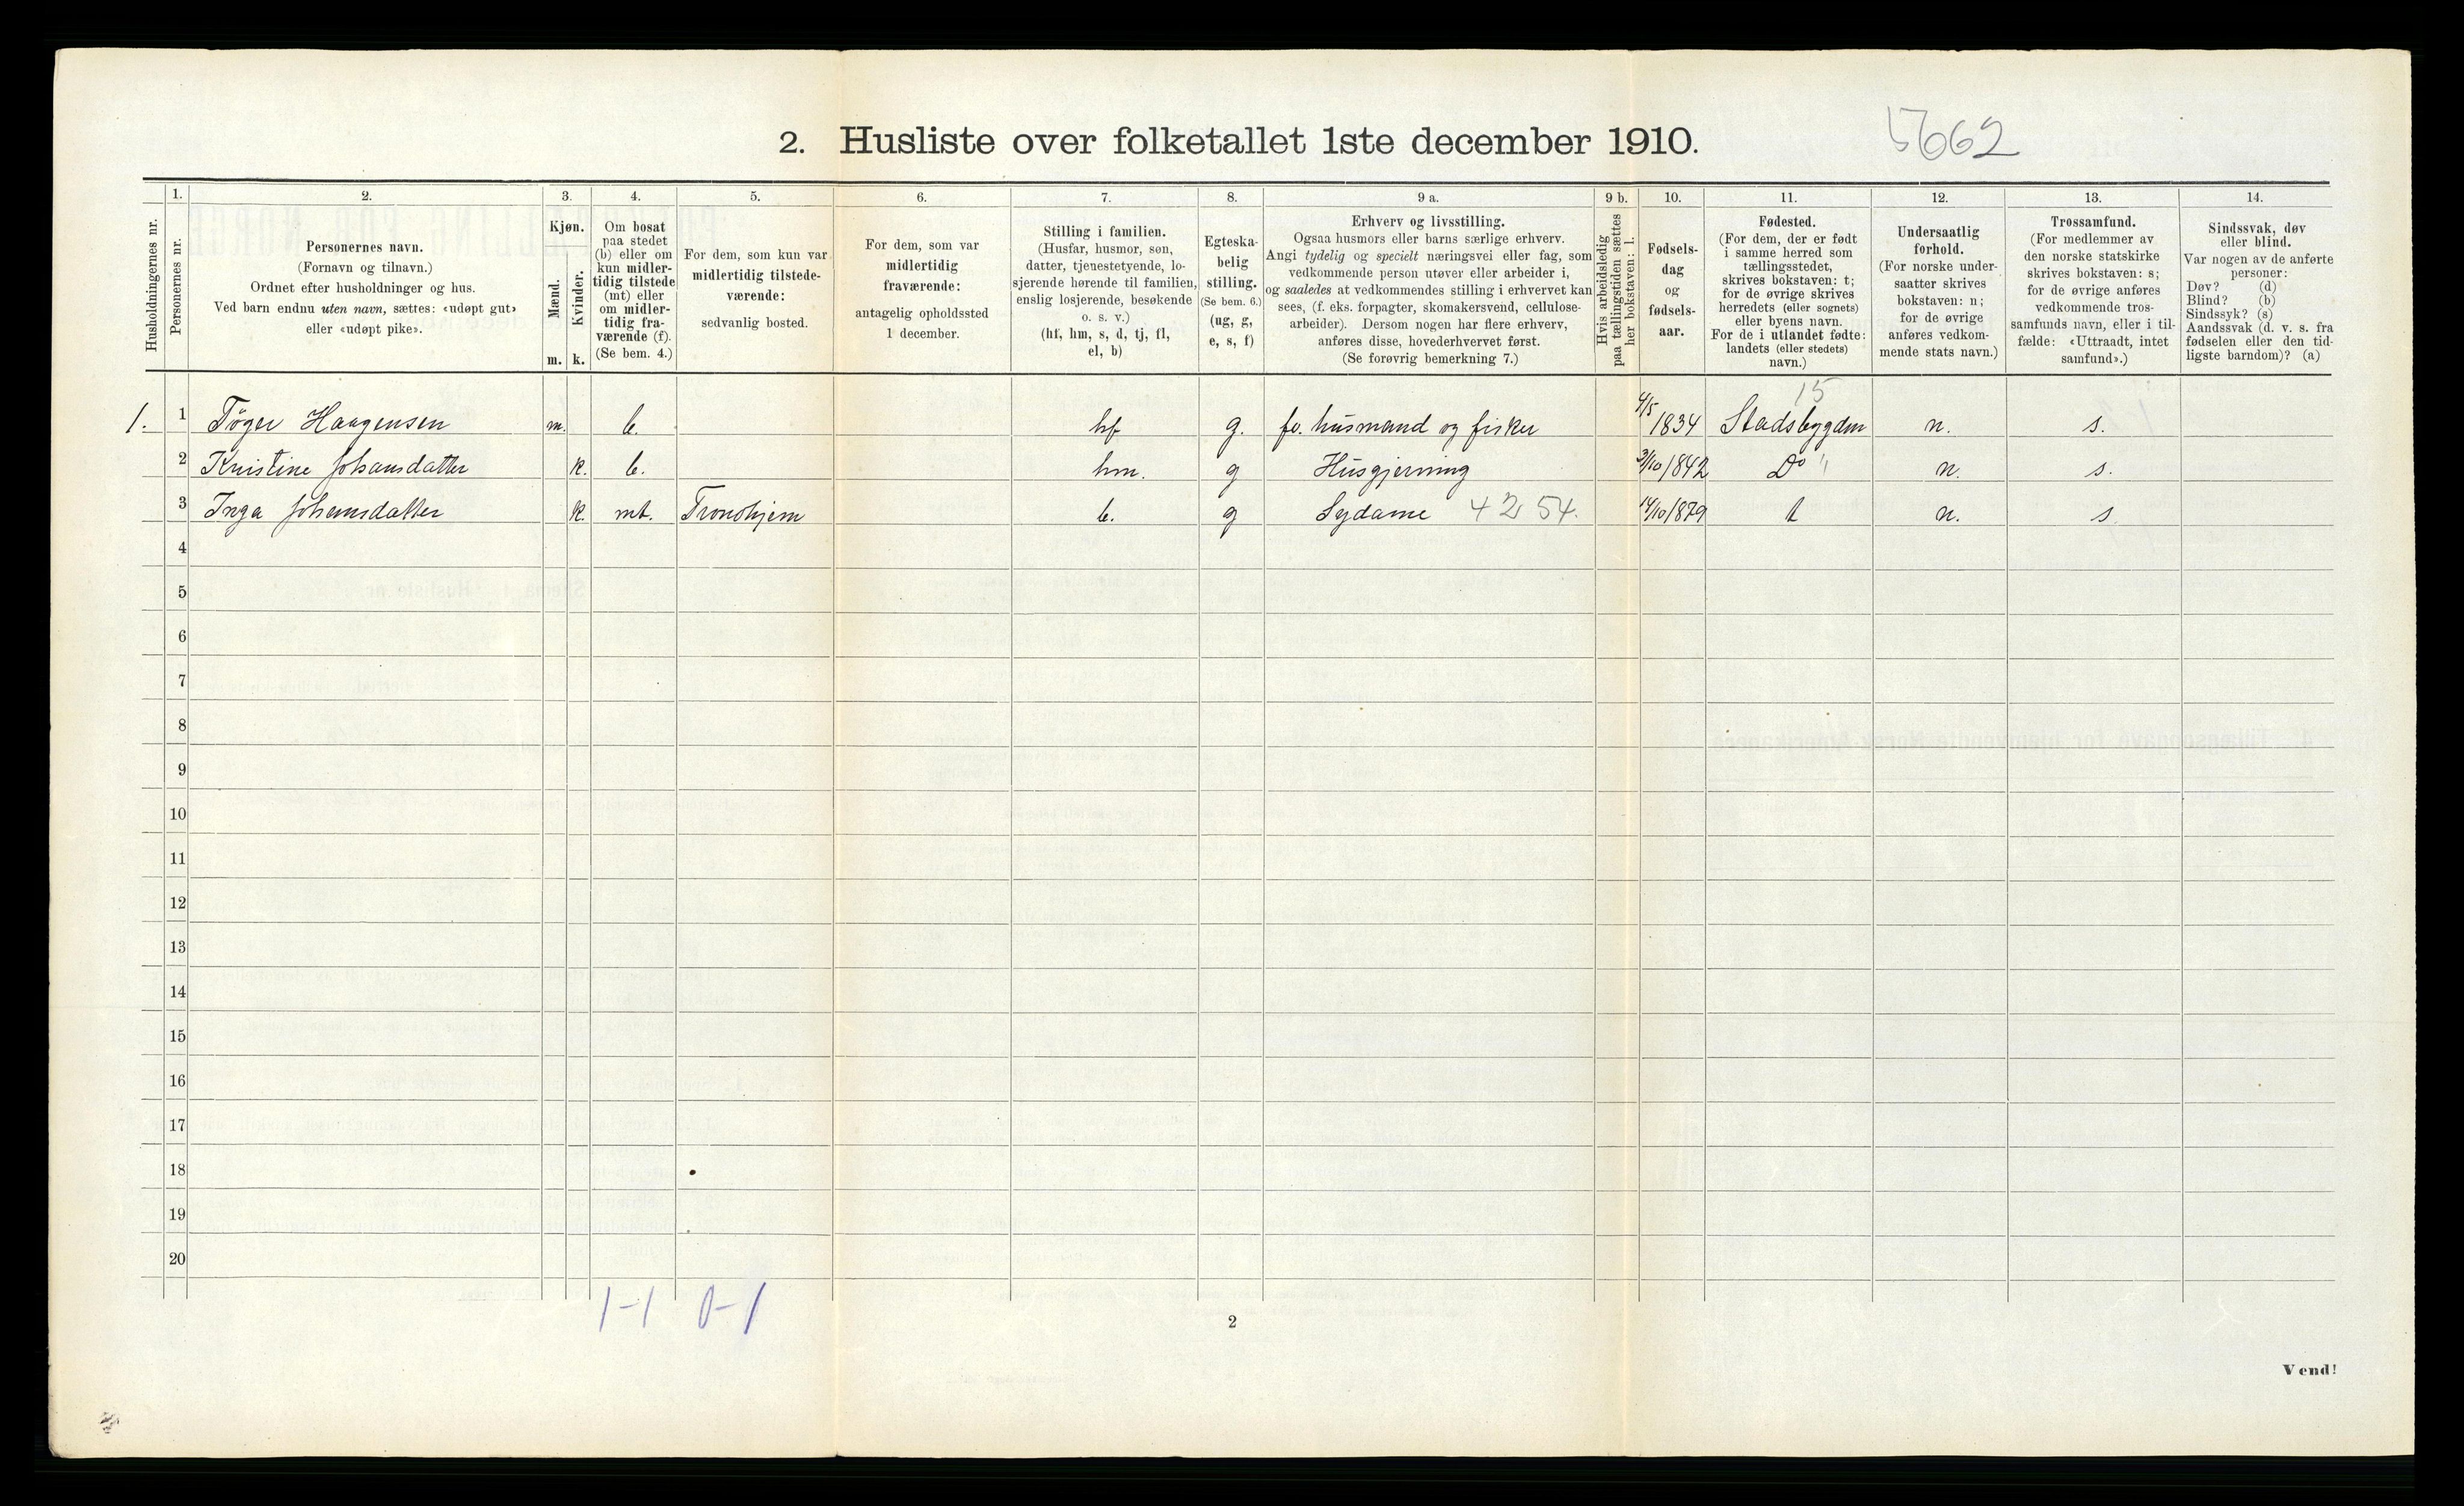 2. Husliste over folketallet 1ste december 1910.
5662
Husholdningernes nr.
1.
Personernes nr.
2.
Personernes navn.
(Fornavn og tilnavn.)
Ordnet efter husholdninger og hus.
Ved barn endnu uten navn, sættes: «udøpt gut»
eller «udøpt pike».
3.
Kjøn.
Mænd.
m.
Kvinder.
k.
4.
Om bosat
paa stedet
(b) eller om
kun midler-
tidig tilstede
(mt) eller
om midler-
tidig fra-
værende (f).
(Se bem. 4.)
5.
For dem, som kun var
midlertidig tilstede-
værende:
sedvanlig bosted.
6.
For dem, som var
midlertidig
fraværende:
antagelig opholdssted
1 december.
7.
Stilling i familien.
(Husfar, husmor, søn,
datter, tjenestetyende, lo-
sjerende hørende til familien,
enslig losjerende, besøkende
o. s. v.)
(hf, hm, s, d, tj, fl,
el, b)
8.
Egteska-
belig
stilling.
(Se bem. 6.)
(ug, g,
e, s, f)
9 a.
Erhverv og livsstilling.
Ogsaa husmors eller barns særlige erhverv.
Angi tydelig og specielt næringsvei eller fag, som
vedkommende person utøver eller arbeider i,
og saaledes at vedkommendes stilling i erhvervet kan
sees, (f. eks. forpagter, skomakersvend, cellulose-
arbeider). Dersom nogen har flere erhverv,
anføres disse, hovederhvervet først.
(Se forøvrig bemerkning 7.)
9 b.
Hvis arbeidsledig
paa tællingstiden sættes
her bokstaven: l.
10.
Fødsels-
dag
og
fødsels-
aar.
11.
Fødested.
(For dem, der er født
i samme herred som
tællingsstedet,
skrives bokstaven: t;
for de øvrige skrives
herredets (eller sognets)
eller byens navn.
For de i utlandet fødte:
landets (eller stedets)
navn.)
12.
Undersaatlig
forhold.
(For norske under-
saatter skrives
bokstaven: n;
for de øvrige
anføres vedkom-
mende stats navn.)
13.
Trossamfund.
(For medlemmer av
den norske statskirke
skrives bokstaven: s;
for de øvrige anføres
vedkommende tros-
samfunds navn, eller i til-
fælde: «Uttraadt, intet
samfund».)
14.
Sindssvak, døv
eller blind.
Var nogen av de anførte
personer:
Døv? (d)
Blind? (b)
Sindssyk? (s)
Aandssvak (d. v. s. fra
fødselen eller den tid-
ligste barndom)? (a)
15
1. 1 Tøger Haagensen m. b. hf g. fv. husmand og fisker 4/5 1834 Stadsbygden n. s.
2 Kristine Johansdatter k. b. hm. g Husgjerning 3/10 1842 Do " n. s.
3 Inga Johansdatter k. mt. Trondhjem b. g Sydame 42 54. 14/10 1879 t n. s
4
5
6
7
8
9
10
11
12
13
14
15
16
17
18
19
20
1-1 0-1
2
Vend!